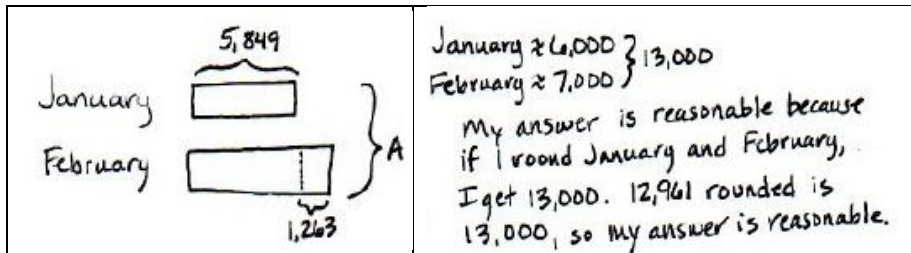 5,849
January
February
A
1,263
January ≈ 6,000
February ≈ 7,000
13,000
My answer is reasonable because
if I round January and February,
I get 13,000. 12,961 rounded is
13,000, so my answer is reasonable.